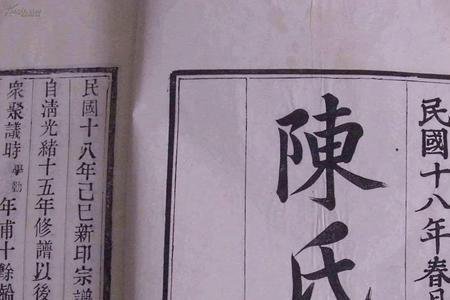 民國十八年春月
陳氏
民國十八年己巳新印宗譜
自淸光緖十五年修譜以後
衆聚議時學勤年甫十餘齡